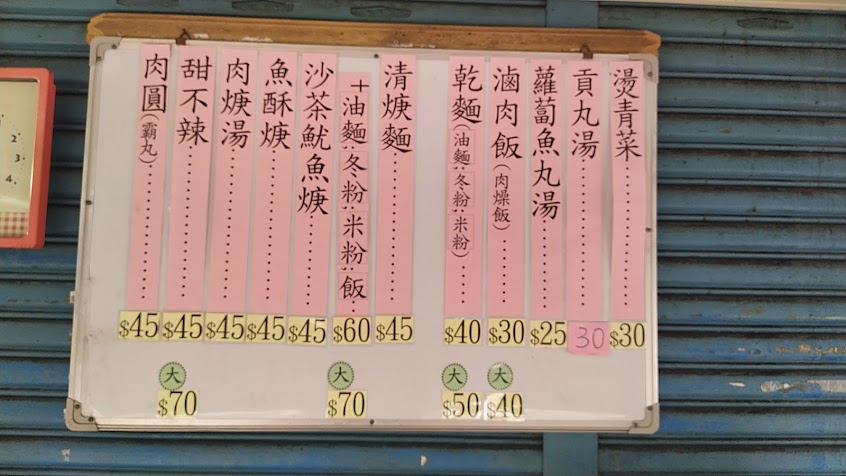 燙青菜............$30
貢丸湯............30
蘿蔔魚丸湯......$25
滷肉飯(肉燥飯)......$30 大 $40
乾麵(油麵、冬粉、米粉)....$40 大 $50
清焿麵............$45
+油麵、冬粉、米粉、飯..$60 大 $70
沙茶魷魚焿......$45
魚酥焿............$45
肉焿湯............$45
甜不辣............$45 大 $70
肉圓(霸丸)............$45
2
3
4